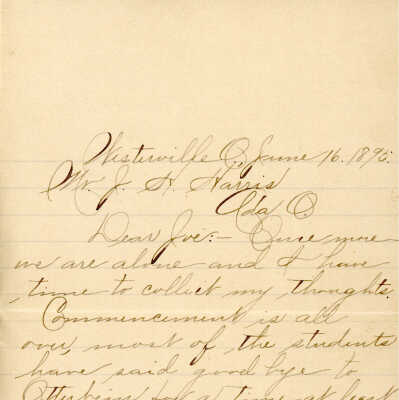 Westerville O, June 16. 1895.
Mr. J. H. Harris
Ada O.
Dear Joe:- Once more
we are alone and I have
time to collect my thoughts.
Commencement is all
over, most of the students
have said good bye to
Otterbein for a time at least